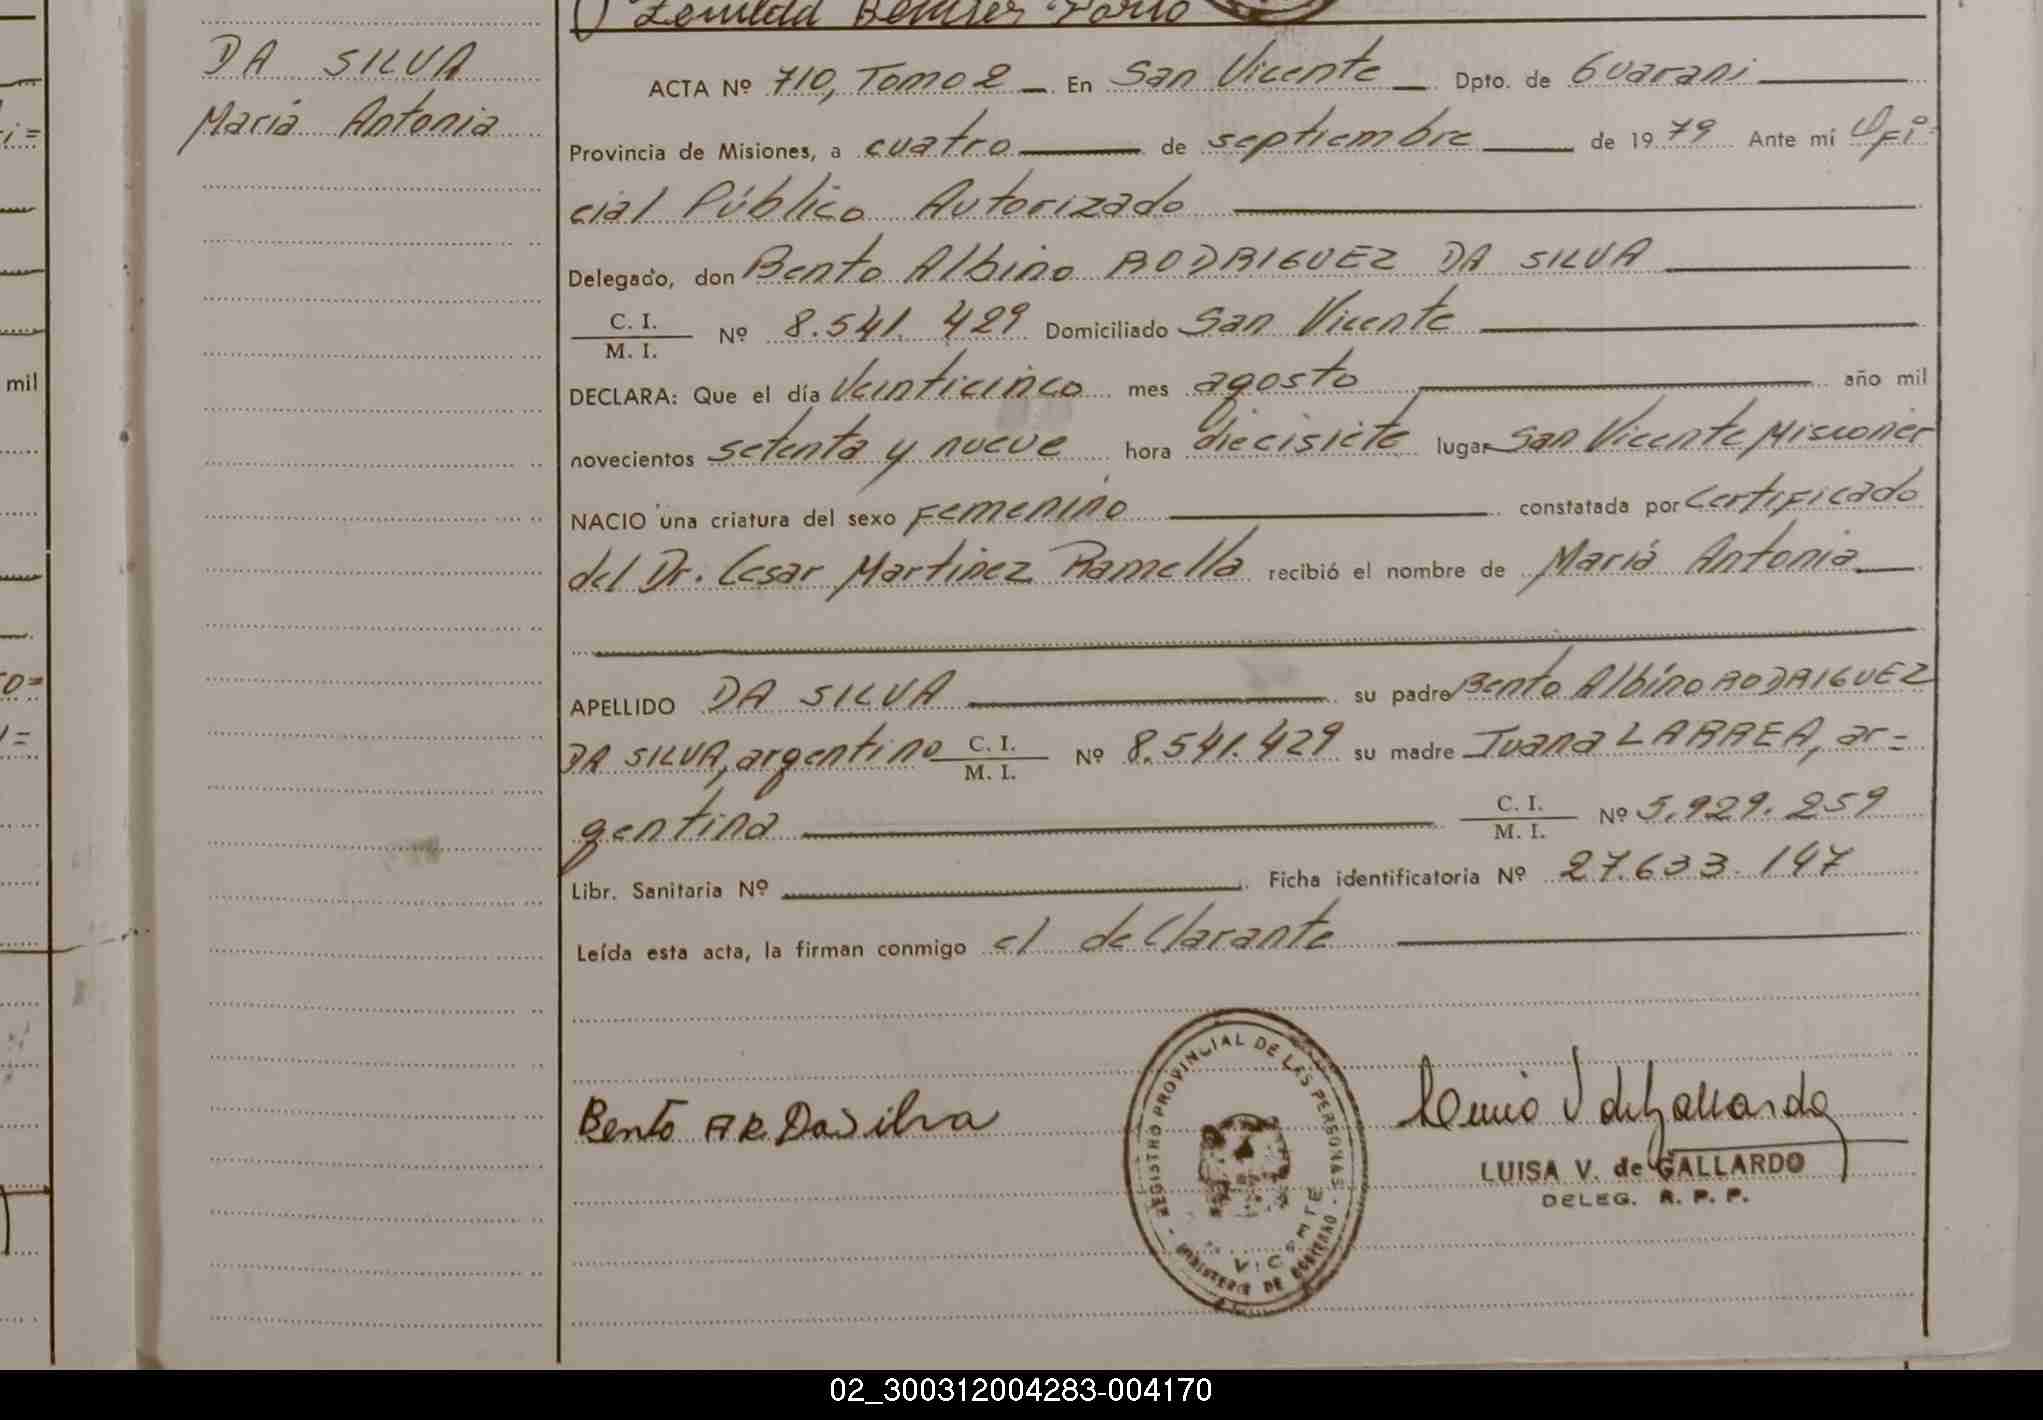 DA SILVA
Mariá Antonia
mil
ACTA Nº 710, Tomo 2 En San Vicente Dpto. de Guarani
Provincia de Misiones, a cuatro de septiembre de 1979 Ante mí Ofi=
cial Público Autorizado
Delegado, don Bento Albino RODRIGUEZ DA SILVA
C. I.
M. I. Nº 8.541.429 Domiciliado San Vicente
DECLARA: Que el día Veinticinco mes agosto año mil
novecientos setenta y nueve hora diecisiete lugar San Vicente Misiones
NACIO una criatura del sexo Femenino constatada por Certificado
del Dr. Cesar Martinez Ramella recibió el nombre de Mariá Antonia
APELLIDO DA SILVA su padre Bento Albino RODRIGUEZ
DA SILVA, argentino C. I. M. I. Nº 8.541.429 su madre Juana LARREA, ar=
gentina C. I. M. I. Nº 5.929.259
Libr. Sanitaria Nº Ficha identificatoria Nº 27.633.147
Leída esta acta, la firman conmigo el declarante
Bento A R. Da Silva
REGISTRO PROVINCIAL DE LAS PERSONAS - MINISTERIO DE GOBIERNO -
VICENTE
LUISA V. de GALLARDO
DELEG. R. P. P.
02_300312004283-004170